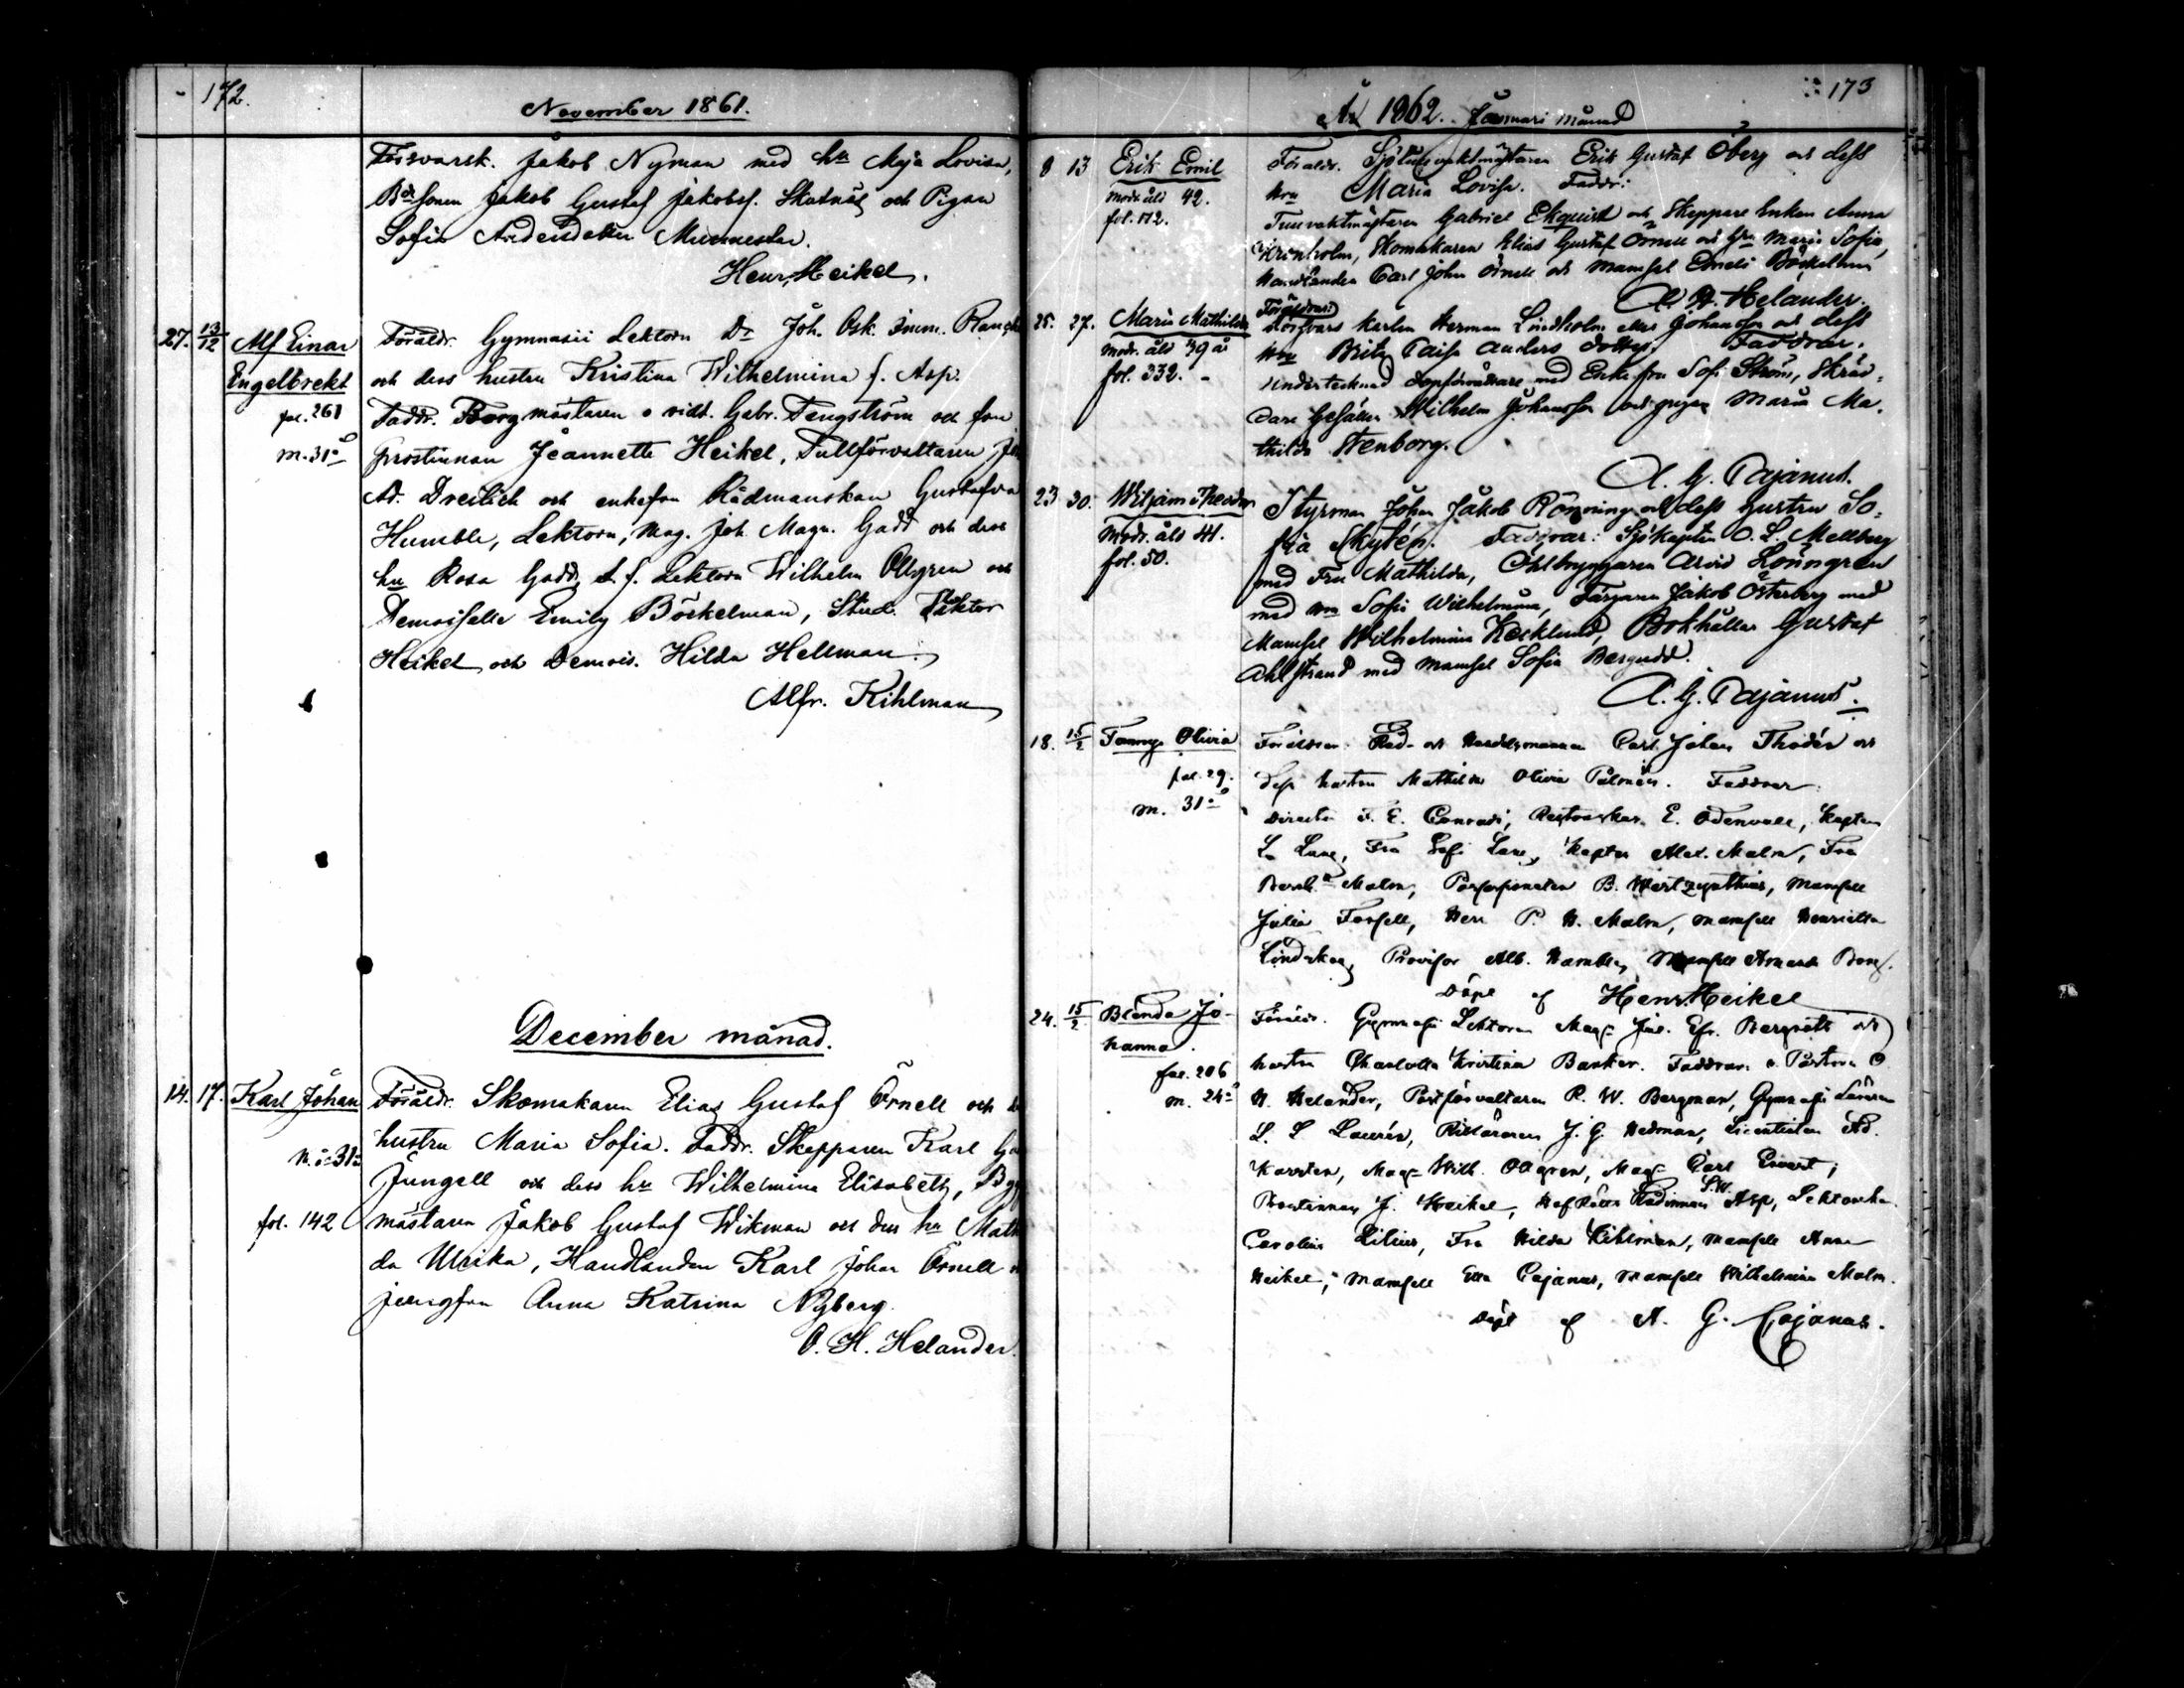 172.
November 1861.
Försvarsk. Jakob Nyman med hu Maja Lovisa,
Bdesonen Jakob Gustaf Jakobss. Skatnäs och Pigan
Sofia Andersdotter
Henr. Heikel.
27. 13/12 Alf Einar
Engelbrekt
fol. 261
m. 31 å
Föräldr. Gymnasii Lektorn Dr Joh. Osk. Imm.
och dess hustru Kristina Wilhelmina f. Asp.
Faddr. Borgmästaren o ridd. Gabr. Tengström och fru
prostinnan Jeannette Heikel, Tullförvaltaren
Ad. Dreilick och enkefru Rådmanskan Gustafva
Humble, Lektorn, Mag. Joh. Magn. Gadd och dess
hu Rosa Gadd, t. f. Lektorn Wilhelm Ollgren och
Demoiselle Emily Böckelman, Stud. Viktor
Heikel och Demois. Hilda Hellman.
Alfr. Kihlman
December månad.
14. 17. Karl Johan
m. å 31
fol. 142
Föräldr. Skomakaren Elias Gustaf Örnell och
hustru Maria Sofia. Faddr. Skepparen Karl
Jungell och dess hu Wilhelmina Elisabeth,
mästaren Jakob Gustaf Wikman och dess hu
da Ulrika, Handlanden Karl Johan Örnell
jungfru Anna Katrina Nyberg.
O. H. Helander.
173
År 1862. Januari månad
8 13 Erik Emil
Modr. åld 42.
fol. 112.
Föräldr. Erik Gustaf Öberg och dess
Hru Maria Lovisa. Faddr:
Tullvaktmästaren Gabriel Ekquist och Skeppare Enkan Anna
Kronholm, Skomakaren Elias Gustaf Örnell och Hru Maria Sofia,
Handlanden Carl John Örnell och Mamsel Emeli Böckelman
O. H. Helander.
25. 27. Maria Mathilda
Modr. åld 39 år
fol. 332.
Föräldrar:
Försvars karlen Herman Lindholm eller Johansson och dess
Hru Brita Caisa Anders dotter. Faddrar:
undertecknad dopförrättare med Enke fru Sofi Ström, Skräd-
dare Gesällen Wilhelm Johansson och pigan Maria Ma-
thilda Stenborg.
A. G. Cajanus.
23 30. Wiljam Theodor
Modr. åld 41.
fol. 50.
Styrman Johan Jakob Rönning och dess hustru So-
fia Skytén. Faddrar: Sjökapten O. L. Mellberg
med Fru Mathilda, Arvid Lönngren
med Hru Sofia Wilhelmina, Färgaren Jakob Österberg med
Mamsel Wilhelmina Kecklund, Bokhållar Gustaf
Ahlstrand med Mamsel Sofia Bergudd.
A. G. Cajanus.
18. 15/2 Fanny Olivia
fol. 29.
m. 31 å
Föräldrar: Råd- och Handelsmannen Carl Johan Thodén och
dess hustru Mathilda Olivia Palmén. Faddrar
Director F. E. Conradi, E. Odenvall, Kapten
L. Lang, Fru Sofi Lang, Kapten Alex. Malm, Fru
Malm, B. Hertzynthius, Mamsell
Julia Forsell, Herr P. H. Malm, Mamsell Henrietta
Lindskog, Provisor Alb. Hambley, Mamsell Amanda
Döpt af Henr. Heikel
24. 15/2. Blenda Jo-
hanna.
fol. 206
m. 24 å
Föräldr. Gymnasii Lektoren Mag. Jul. Efr. Bergroth och
hustru Charlotta Kristina Backer. Faddrar: Pastorn O.
H. Helander, Postförvaltaren R. W. Bergman, Gymnasii Läraren
L. L. Laurén, J. G. Hedman, Licentiaten Ad.
Karsten, Mag. Wilh. Ollgren, Mag. Carl Envert;
Prostinnan J. Heikel, L. W. Asp, Lektorska
Carolina Lilius, Fru Hilda Kihlman, Mamsell Anna
Heikel, Mamsell Emma Cajanus, Mamsell Wilhelmina Malm.
Döpt af A. G. Cajanus.